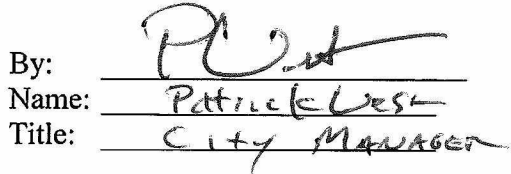 By: P West
Name: Patrick West
Title: City Manager